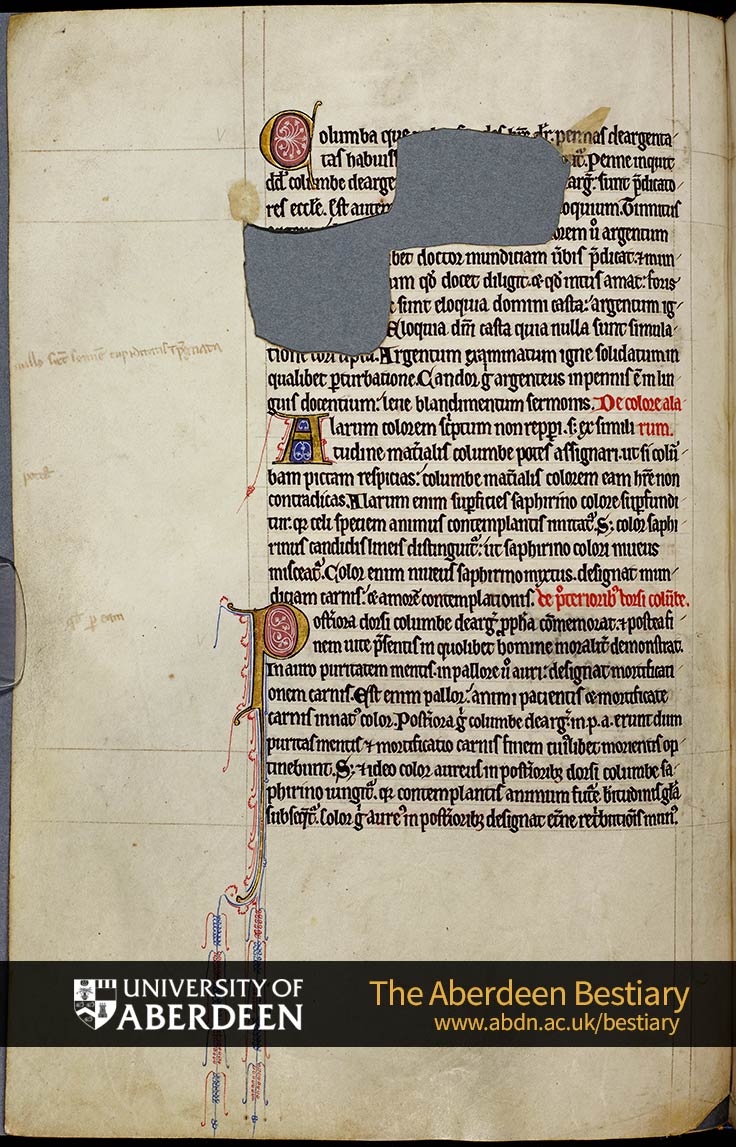 Columba que dr̄. pennas deargenta
tas habuisse Penne inquit
dd̄ columbe dearge arḡ. sunt p̄dicato
res eccłe. Est autem oquium. Tinnitus
orem ů argentum
bet doctor mundiciam ůbis p̄dicat. ⁊ mun
um qd̄ docet diligit. ⁊ qd̄ intus amat: foris
sunt eloquia domini casta: argentum ig
Eloquia dn̄i casta quia nulla sunt simula
tione corrupta. Argentum examinatum igne solidatum in
qualibet ꝑturbatione. Candor g̊ argenteus in pennis ē in lin
guis docentium: lene blandimentum sermonis. De colore ala
Alarum colorem sc̄ptum non repperi. s; ex simili rum.
tudine mat̄ialis columbe potes assignari. ut si colū
bam pictam respicias: columbe mat̄ialis colorem eam hr̄e non
contradicas. Alarum enim sup̄ficies saphirino colore sup̄fundi
tur: qr celi speciem animus contemplantis imitat᷑. S; color saphi
rinus candidis lineis distinguit᷑: ut saphirino colori niueus
misceat᷑. Color enim niueus saphirino mixtus. designat mun
diciam carnis. ⁊ amorē contemplationis. De p̊terioribꝰ dorsi colūbe.
Post̄iora dorsi columbe dearḡ. ꝓpħa cōmemorat. ⁊ postea fi
nem uite p̄sentis in quolibet homine moralit᷑ demonstrat.
In auro puritatem mentis. in pallore ů auri: designat mortificati
onem carnis. Est enim pallor: animi pacientis ⁊ mortificate
carnis innatꝰ color. Post̄iora g̊ columbe dearḡ. in p. a. erunt dum
puritas mentis ⁊ mortificatio carnis finem cuiůlibet morientis op
tinebunt. S; ⁊ ideo color aureus in post̄ioribꝫ dorsi columbe sa
phirino iungit᷑. qr contemplantis animum fut̄e b̄titudinis gła
subseq̄t᷑. Color g̊ aureꝰ in post̄ioribꝫ designat et̄ne ret̄butiōis munꝰ.
UNIVERSITY OF
ABERDEEN
The Aberdeen Bestiary
www.abdn.ac.uk/bestiary